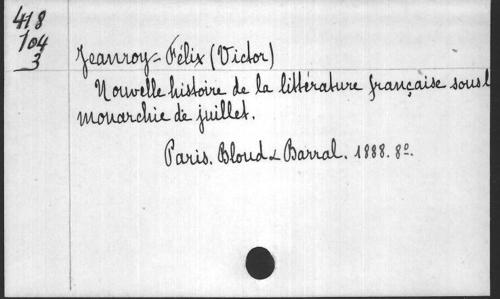 418
104
3
Jeanroy-Félix (Victor)
Nouvelle histoire de la littérature française sous l
monarchie de juillet.
Paris. Bloud & Barral. 1888. 8º.